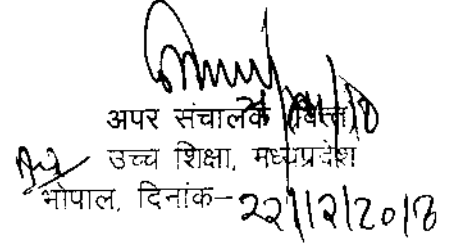 अपर संचालक (वित्त)
उच्च शिक्षा, मध्यप्रदेश
भोपाल, दिनांक-22/12/2018